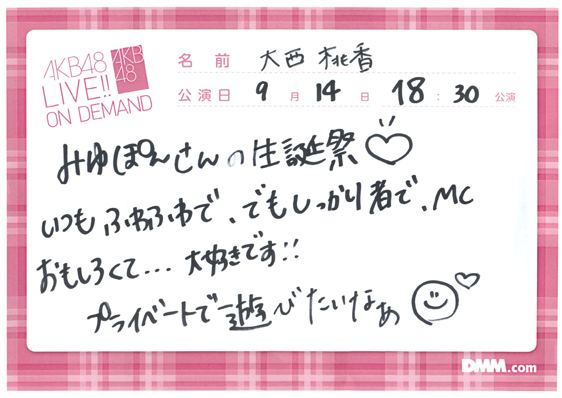 AKB48
LIVE!!
ON DEMAND
AKB
48
名前 大西 桃香
公演日 9月14日 18:30公演
みゆぽんさんの生誕祭♡
いつもふわふわで、でもしっかり者で、MC
おもしろくて...大好きです!!
プライベートで遊びたいなぁ
DMM.com